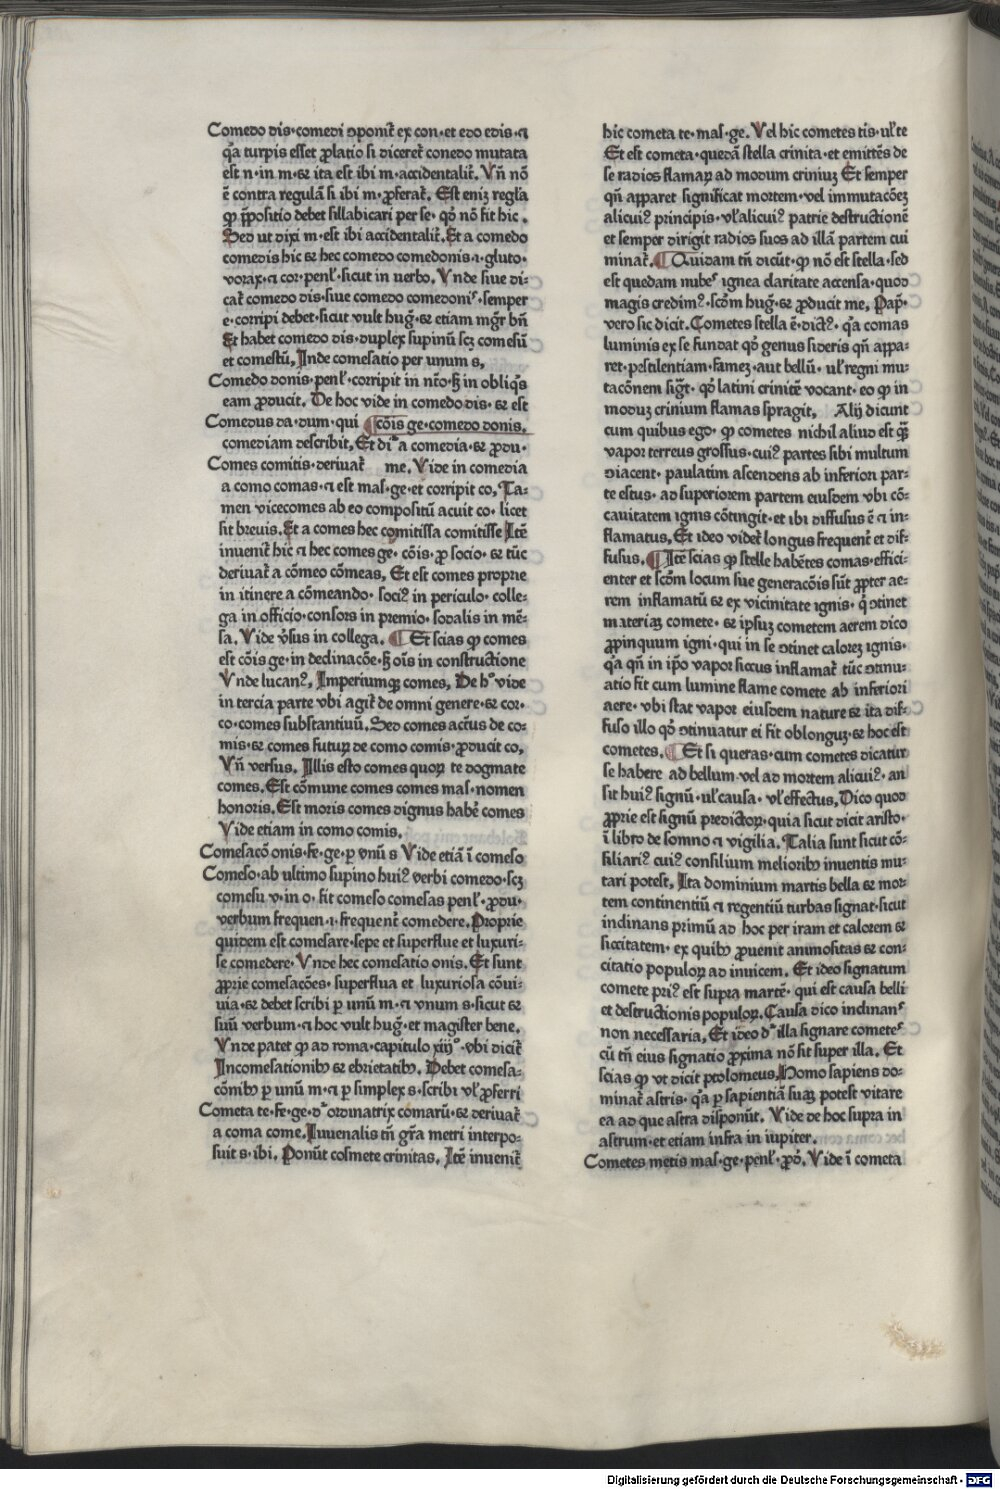 Comedo dis·comedi ɔponit᷑ ex con·et edo edis·⁊
q̄a turpis esset ꝓlatio si diceret᷑ conedo mutata
est n·in m·⁊ ita est ibi m·accidentalit᷑. Vn̄ nō
ē contra regulā si ibi m·ꝓferat᷑. Est enꝫ reg̃la
ꝙ p̄positio debet sillabicari per se·qd̓ nō fit hic.
Sed ut dixi m·est ibi accidentalit᷑. Et a comedo
comedis hic ⁊ hec comedo comedonis·i·gluto·
vorax·⁊ cor·penl̓·sicut in uerbo. Vnde siue di-
cat᷑ comedo dis·siue comedo comedonis·semper
e·corripi debet·sicut vult hug̃·⁊ etiam mgr̄ bn̄
Et habet comedo dis·duplex supinū scꝫ comesū
et comestū. Inde comesatio per unum s.
Comedo donis·penl̓·corripit in nr̄o·ꝫ in obliq̓s
eam ꝓducit. De hoc vide in comedo dis·⁊ est
Comedus da·dum·qui ¶ cōis ge·comedo donis.
comediam describit. Et dr̄ a comedia·⁊ ꝓdu·
Comes comitis·deriuat᷑ me. Vide in comedia
a como comas·⁊ est mas·ge·et corripit co. Ta-
men vicecomes ab eo compositū acuit co· licet
sit breuis. Et a comes hec comitissa comitisse Itē
inuenit᷑ hic ⁊ hec comes ge·cōis·ꝓ socio·⁊ tūc
deriuat᷑ a cōmeo cōmeas. Et est comes proprie
in itinere a cōmeando·soci⁹ in periculo·colle-
ga in officio·consors in premio·sodalis in mē-
sa. Vide v̓sus in collega. ¶ Et scias ꝙ comes
est cōis ge·in declinacōe·ꝫ oīs in constructione
Vnde lucan⁹. Imperiumqꝫ comes. De hᵒ vide
in tercia parte vbi agit᷑ de omni genere·⁊ cor·
co·comes substantiuū. Sed comes act̄us de co-
mis·⁊ comes futuꝝ de como comis·ꝓducit co.
Vn̄ versus. Illis esto comes quoꝝ te dogmate
comes. Est cōmune comes comes mas·nomen
honoris. Est moris comes dignus habē comes
Vide etiam in como comis.
Comesacō onis·fe·ge·ꝑ vnū s Vide etiā ī comeso
Comeso·ab ultimo supino hui⁹ verbi comedo·scꝫ
comesu v·in o·fit comeso comesas penl̓·ꝓdu·
verbum frequen·i·frequent᷑ comedere. Proprie
quidem est comesare·sepe et superflue et luxuri-
se comedere· Vnde hec comesatio onis. Et sunt
ꝓprie comesacōes·superflua et luxuriosa cōui-
uia·⁊ debet scribi ꝑ unū m·⁊ vnum s·sicut ⁊
suū verbum·⁊ hoc vult hug̃·et magister bene.
Vnde patet ꝙ ad roma·capitulo xiijᵒ·vbi dicit᷑
Incomesationibꝫ ⁊ ebrietatibꝫ. Debet comesa-
cōnibꝫ ꝑ unū m·⁊ ꝑ simplex s·scribi vl̓ ꝓferri
Cometa te·fe·ge·dr̄ ordinatrix comarū·⁊ deriuat᷑
a coma come. Iuuenalis tn̄ gr̄a metri interpo-
suit s·ibi. Ponūt cosmete crinitas. Itē inuenit᷑
hic cometa te·mas·ge. Vel hic cometes tis·ul̓ te
Et est cometa·quedā stella crinita·et emittēs de
se radios flamaꝝ ad modum criniuꝫ Et semper
qn̄ apparet significat mortem·vel immutacōeꝫ
alicui⁹ principis·vl̓ alicui⁹ patrie destructionē
et semper dirigit radios suos ad illā partem cui
minat᷑. ¶ Quidam tn̄ dicūt·ꝙ nō est stella·sed
est quedam nubes ignea claritate accensa·quod
magis credim⁹·scd̄m hug̃·⁊ ꝓducit me. Pap̄·
vero sic dicit. Cometes stella ē·dict⁹·q̄a comas
luminis ex se fundat qd̓ genus sideris qn̄ appa-
ret·pestilentiam·fameꝫ·aut bellū·ul̓ regni mu-
tacōnem sig̃t·qd̓ latini crinitē vocant·eo ꝙ in
moduꝫ crinium flamas spragit. Alij dicunt
cum quibus ego·ꝙ cometes nichil aliud est qꝫ
vapor terreus grossus·cui⁹ partes sibi multum
diacent·paulatim ascendens ab inferiori par-
te estus·ad superiorem partem eiusdem vbi cō-
cauitatem ignis cōtingit·et ibi diffusus ē ⁊ in-
flamatus. Et ideo videt᷑ longus frequent᷑ et dif-
fusus. ¶ Itē scias ꝙ stelle habētes comas·effici-
enter et scd̄m locum sue generacōis sūt ꝓpter ae-
rem inflamatū ⁊ ex vicinitate ignis·q̇ ɔtinet
materiaꝫ comete·⁊ ipsuꝫ cometem aerem dico
ꝓpinquum igni·qui in se ɔtinet caloreꝫ ignis·
q̄a qn̄ in ip̄o vapor siccus inflamat᷑ tūc ɔtinu-
atio fit cum lumine flame comete ab inferiori
aere·vbi stat vapor eiusdem nature ⁊ ita dif-
fuso illo qd̓ ɔtinuatur ei fit oblonguꝫ·⁊ hoc est
cometes. ¶ Et si queras·cum cometes dicatur
se habere ad bellum·vel ad mortem alicui⁹·an
sit hui⁹ signū·ul̓ causa·vl̓ effectus. Dico quod
ꝓprie est signū predictoꝝ·quia sicut dicit aristo·
ī libro de somno ⁊ vigilia. Talia sunt sicut cō-
siliarī cui⁹ consilium melioribꝫ inuentis mu-
tari potest. Ita dominium martis bella ⁊ mor
tem continentiū ⁊ regentiū turbas signat·sicut
inclinans primū ad hoc per iram et calorem ⁊
siccitatem·ex quibꝫ ꝓuenit animositas ⁊ con-
citatio populoꝝ ad inuicem. Et ideo signatum
comete pri⁹ est supra martē·qui est causa belli
et destructionis populoꝝ. Causa dico inclinans
non necessaria. Et ideo dr̄ illa signare cometes
cū tn̄ eius signatio ꝓxima nō sit super illa. Et
scias ꝙ vt dicit ptolomeus. Homo sapiens do-
minat᷑ astris·q̄a ꝑ sapientiā suaꝫ potest vitare
ea ad que astra disponūt. Vide de hoc supra in
astrum·et etiam infra in iupiter.
Cometes metis mas·ge·penl̓·ꝓd̓. Vide ī cometa
Digitalisierung gefördert durch die Deutsche Forschungsgemeinschaft - DFG